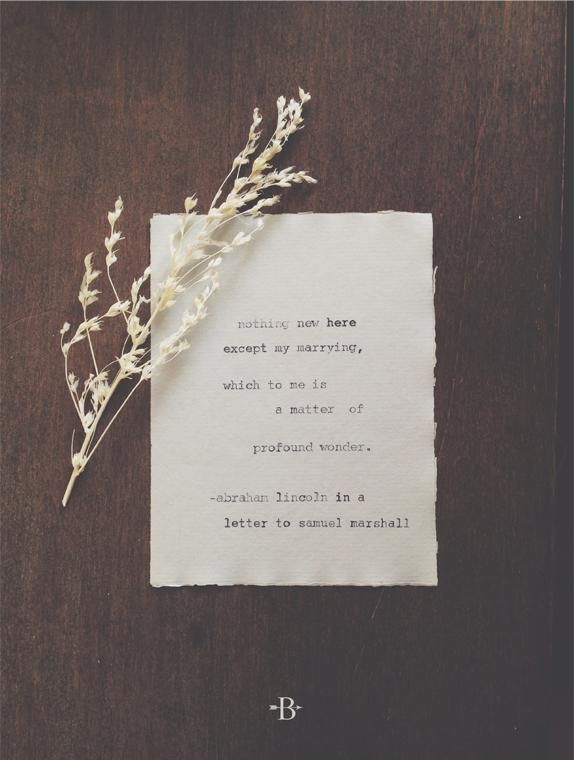 nothing new here
except my marrying,
which to me is
a matter of
profound wonder.
-abraham lincoln in a
letter to samuel marshall
B